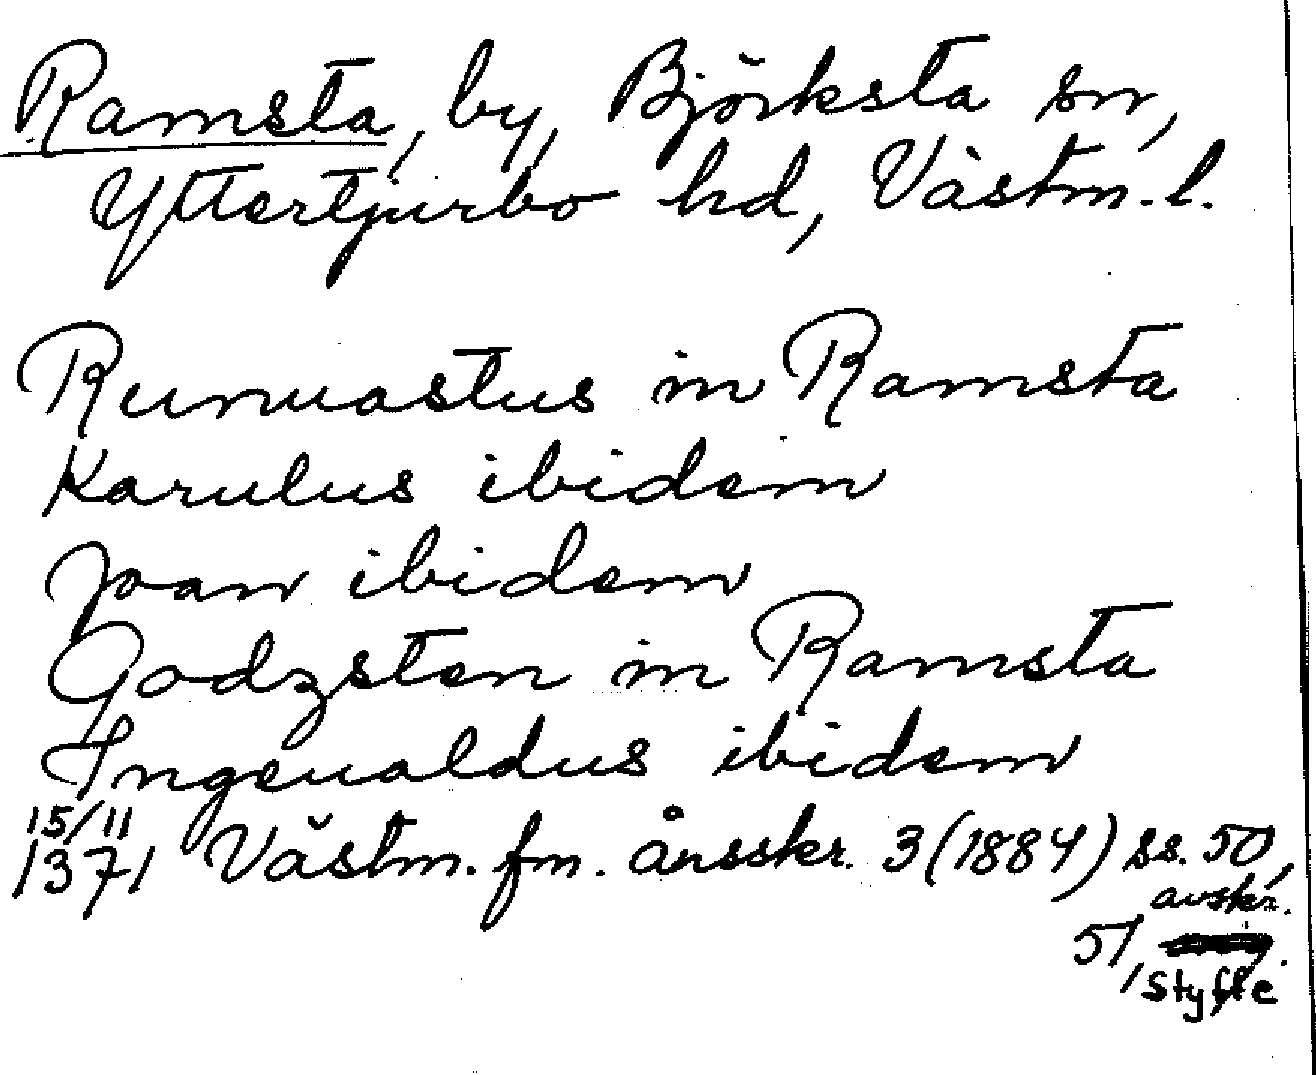 Ramsta, by, Björksta sn,
Yttertjurbo hd, Västm.l.
Runuastus in Ramsta
Karulus ibidem
Joan ibidem
Godzsten in Ramsta
Ingeualdus ibidem
15/11
1371 Västm. fm. årsskr. 3 (1884) ss. 50,
avskr.
51, Styffe